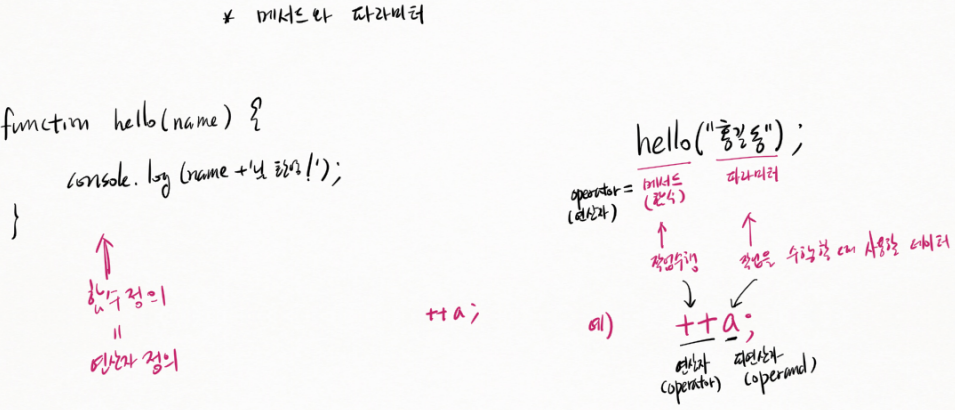 * 메서드와 파라미터
function hello(name) {
console.log(name+'님 환영!');
}
함수 정의
=
연산자 정의
++a;
hello("홍길동");
operator = 메서드 파라미터
(연산자) (함수)
작업수행 작업을 수행할 때 사용할 데이터
예) ++a;
연산자 피연산자
(operator) (operand)